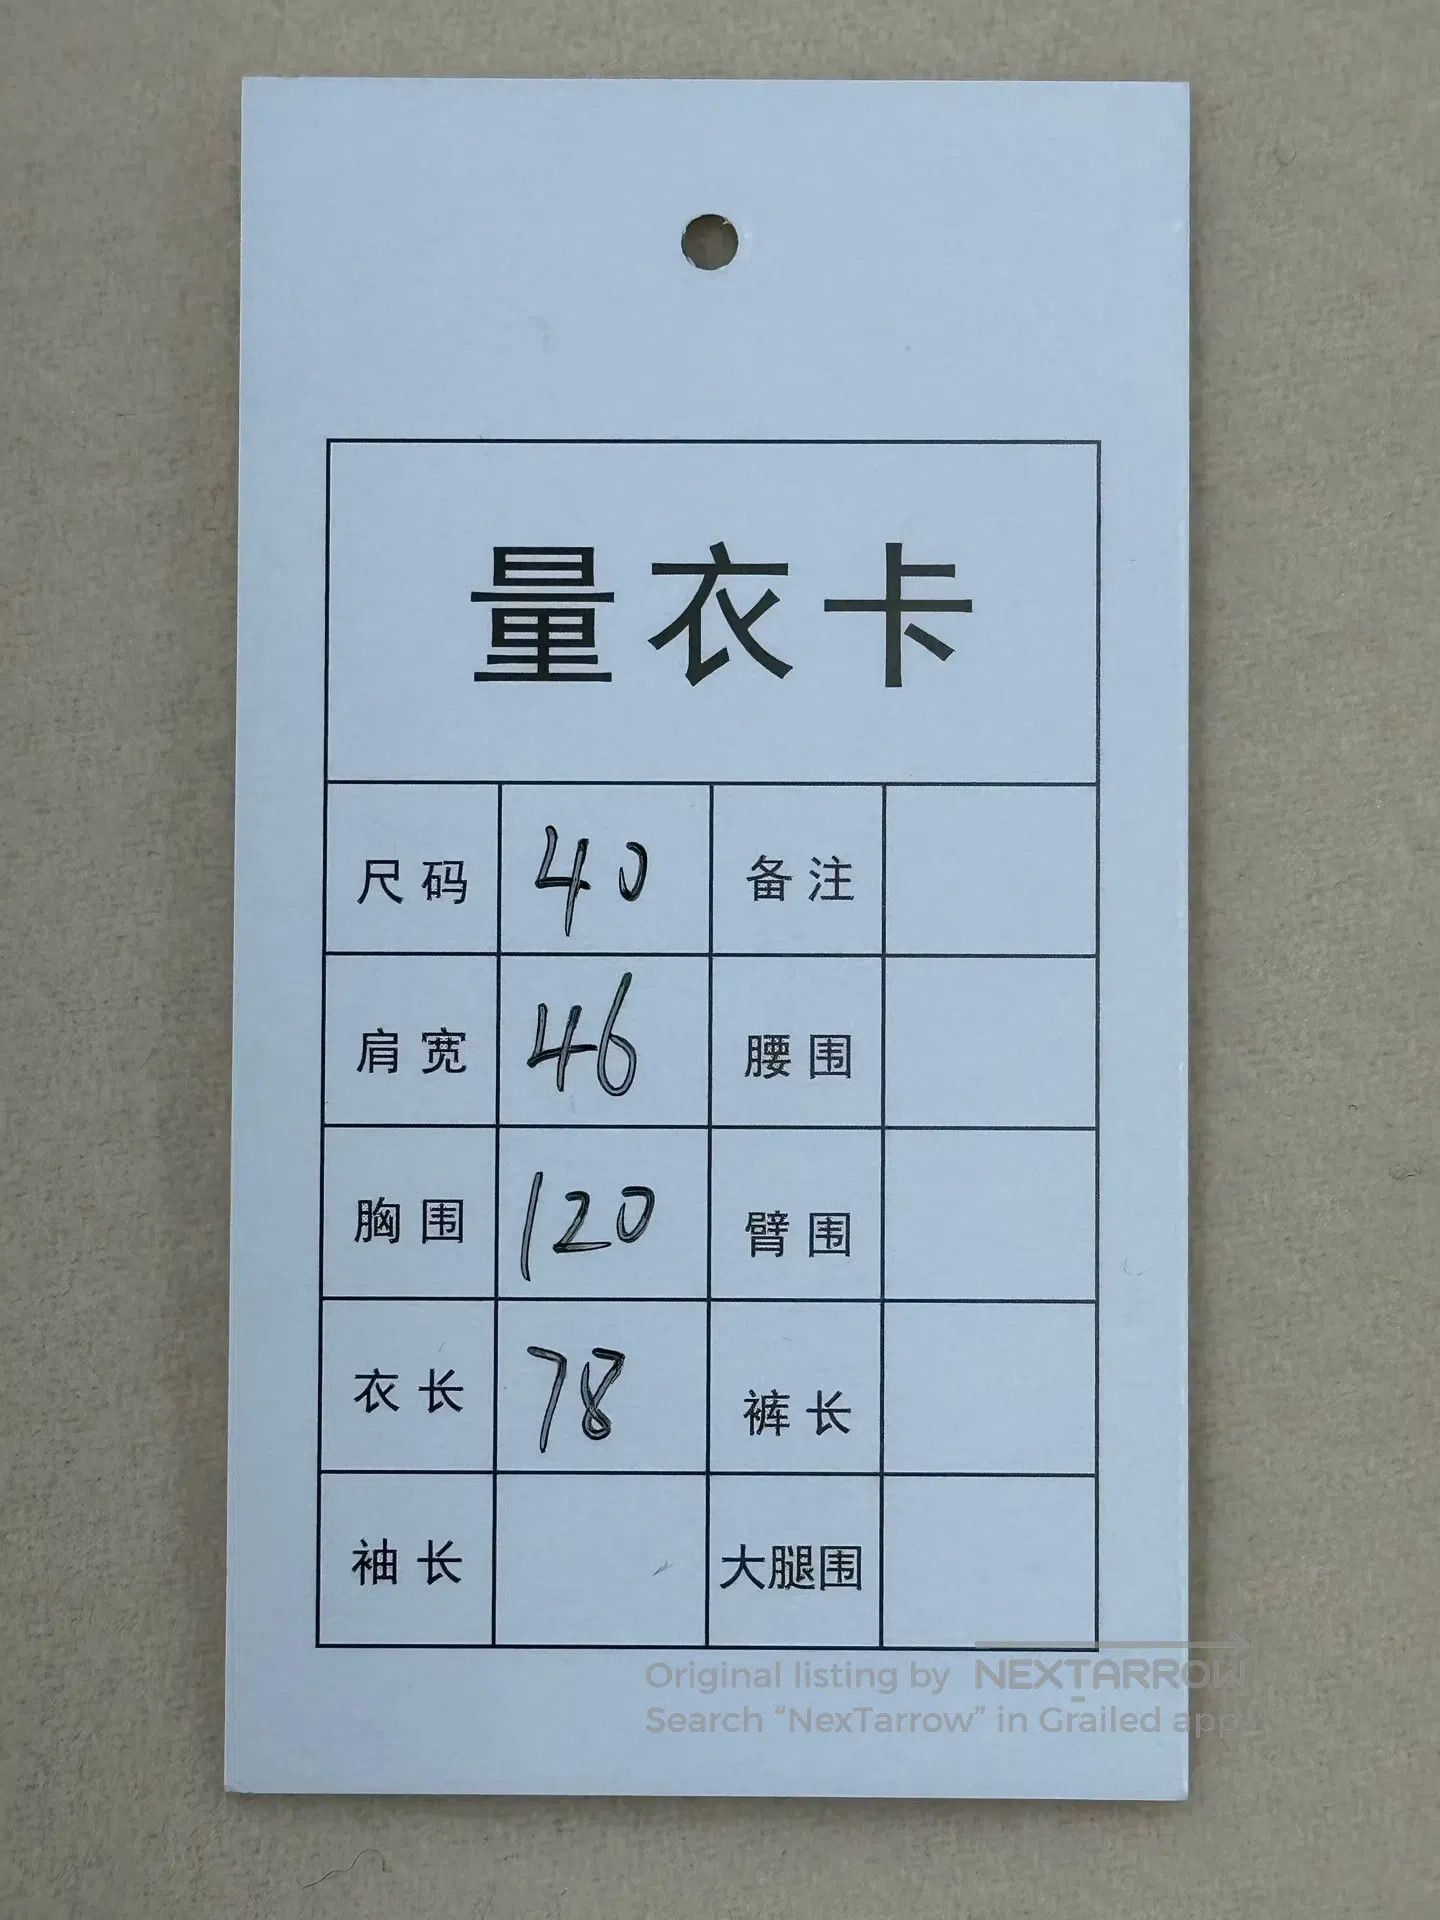 量衣卡
尺码 40 备注
肩宽 46 腰围
胸围 120 臂围
衣长 78 裤长
袖长 大腿围
Original listing by NEXTARROW
Search “NexTarrow” in Grailed app